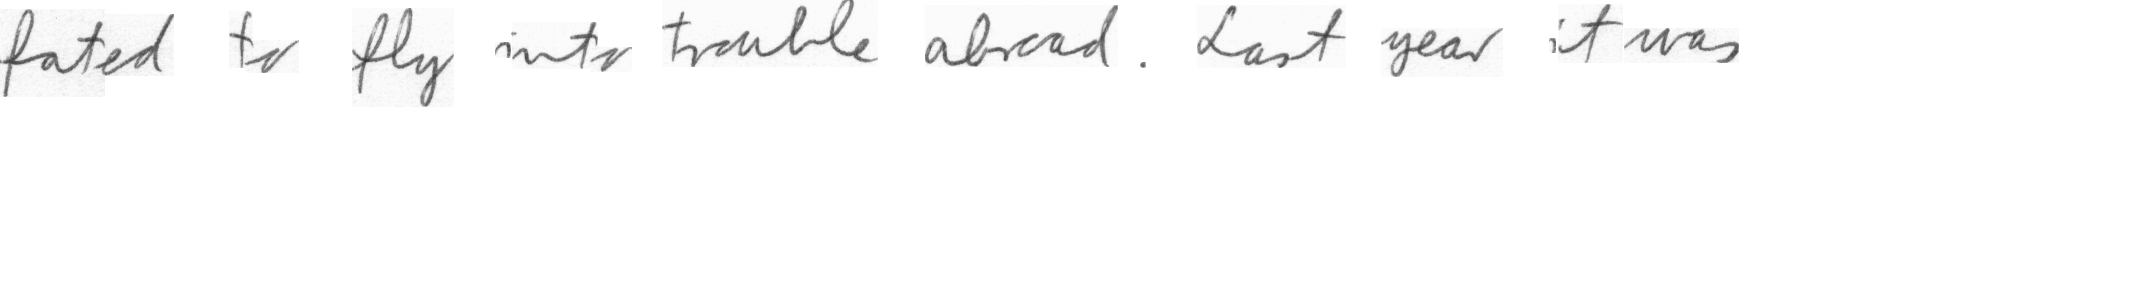 fated to fly into trouble abroad. Last year it was